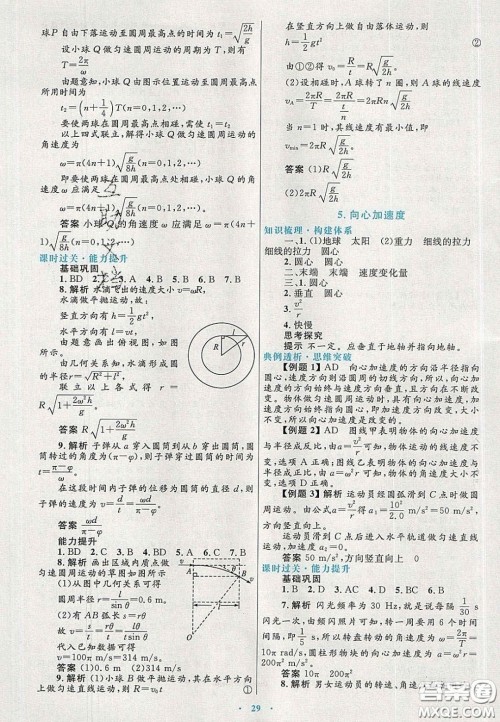 球P自由下落运动至圆周最高点的时间为 t₁=√(2h/g)
设小球Q做匀速圆周运动的周期为T,有
T=2π/ω
由题意知,小球Q由图示位置运动至圆周最高点所用时间为
t₂=(n+1/4)T(n=0,1,2,…)
要使两球在圆周最高点相碰,需使 t₁=t₂
以上四式联立,解得小球Q做匀速圆周运动的角速度
ω=π(4n+1)√(g/8h)(n=0,1,2,…)
即要使两球在圆周最高点相碰,小球Q的角速度ω应满足
ω=π(4n+1)√(g/8h)(n=0,1,2,…)
答案 小球Q的角速度ω应满足ω=π(4n+1)√(g/8h)(n=0,1,2,…)
课时过关·能力提升
基础巩固
1. BD 2. AC 3. A 4. B 5. A 6. A 7. BC
8. 解析 水滴飞出的速度大小 v=ωR,
水滴做平抛运动,故
竖直方向有 h=1/2 gt²
水平方向有 l=vt
由题意画出俯视图,如图所示。
由几何关系知,水滴形成圆的半径 r=√(R²+l²)
联立以上各式得 r=R√(1+2ω²h/g)
答案 R√(1+2ω²h/g)
9. 解析 子弹从a穿入圆筒到从b穿出圆筒,圆筒转过的角度为(π-φ),则子弹穿过圆筒的时间为
t=(π-φ)/ω
在这段时间内子弹的位移为圆筒的直径d,则子弹的速度为 v=d/t=ωd/(π-φ)
答案 ωd/(π-φ)
能力提升
1. BD 2. AC 3. BC 4. D 5. AD 6. D 7. B
8. 解析 物体做匀速圆周运动的草图如图所示
(1)由几何关系可得圆周半径 r=l/sin θ=0.6 m
(2)有AB弧长 s=rθ
故 v=s/t=rθ/t=lθ/(t sin θ)
代入已知数据可得
v=100π m/s=314 m/s
答案 (1)0.6 m (2)314 m/s
9. 解析 (1)小球做平抛运动,其在水平方向上做匀速直线运动,则 R=v₀t ①
在竖直方向上做自由落体运动,则
h=1/2 gt² ②
由①②得 v₀=R√(g/2h)
(2)设相碰时,A球转了n圈,则A球的线速度
v_A=2πR/T=2πR/(t/n)=2πRn√(g/2h)
当 n=1 时,其线速度有最小值,即
v_min=2πR√(g/2h)
答案 (1)R√(g/2h)
(2)2πR√(g/2h)
5. 向心加速度
知识梳理·构建体系
一、1. (1)地球 太阳 (2)重力 细线的拉力 细线的拉力 (3)圆心
2. 圆心
二、末端 末端 速度变化量
三、1. 圆心
2. 垂直 圆心
3. v²/r ω²r
4. 快慢
思考探究
提示 不一定。应垂直于地轴并指向地轴。
典例透析·思维突破
【例题1】AD 向心加速度的方向沿半径指向圆心,速度方向则沿圆周的切线方向。所以,向心加速度的方向始终与速度方向垂直,且方向在不断改变。物体做匀速圆周运动时,只具有向心加速度,加速度方向始终指向圆心;一般情况下,圆周运动的向心加速度与切向加速度的合加速度的方向不是始终指向圆心。
【例题2】A 图线甲表明物体的向心加速度与半径成反比,由 a=v²/r 可知,物体运动的线速度大小不变,选项A正确;图线乙表明物体的向心加速度与半径成正比,由 a=ω²r 可知,物体运动的角速度不变,选项D错误。
【例题3】解析 运动员经圆弧滑到C点时做圆周运动。由公式 aₙ=v²/r 得,a₁=10²/2.0 m/s²=50 m/s²,方向竖直向上。
运动员滑到C点后进入水平轨道做匀速直线运动,加速度 a₂=0。
答案 50 m/s²,方向竖直向上 0
课时过关·能力提升
基础巩固
1. C 2. A 3. D 4. C 5. D 6. C
7. 解析 闪光频率为30 Hz,就是说每隔 1/30 s 闪光一次,由频闪照片可知,转一周要用6个时间间隔,即 1/5 s,所以转盘转动的角速度为 ω=2π/T=10π rad/s,向心加速度为 a=ω²r=200π² m/s²。
答案 10π 200π²
8. 解析 男女运动员的转速、角速度
29